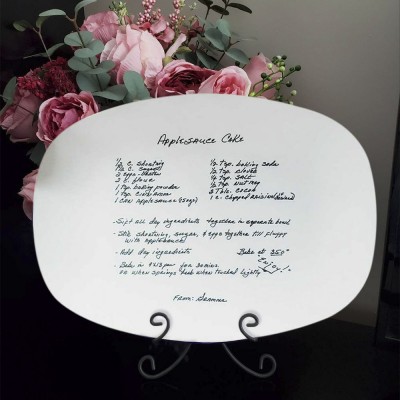 Applesauce Cake
½ C. Shortning
2 eggs - beaten
2 C. flour
1 tsp. baking powder
1 tsp. Cinnamon
1 can applesauce
½ tsp. baking soda
½ tsp. cloves
½ tsp. Nutmeg
2 Tbls. cocoa
1 c. chopped raisins
- Sift all dry ingredients together in separate bowl
- Stir shortning, sugar, & eggs together till fluffy
with applesauce
- Add dry ingredients
Bake at 350°
- Bake in 9x13 pan
or when springs back when touched lightly
Enjoy!
From: